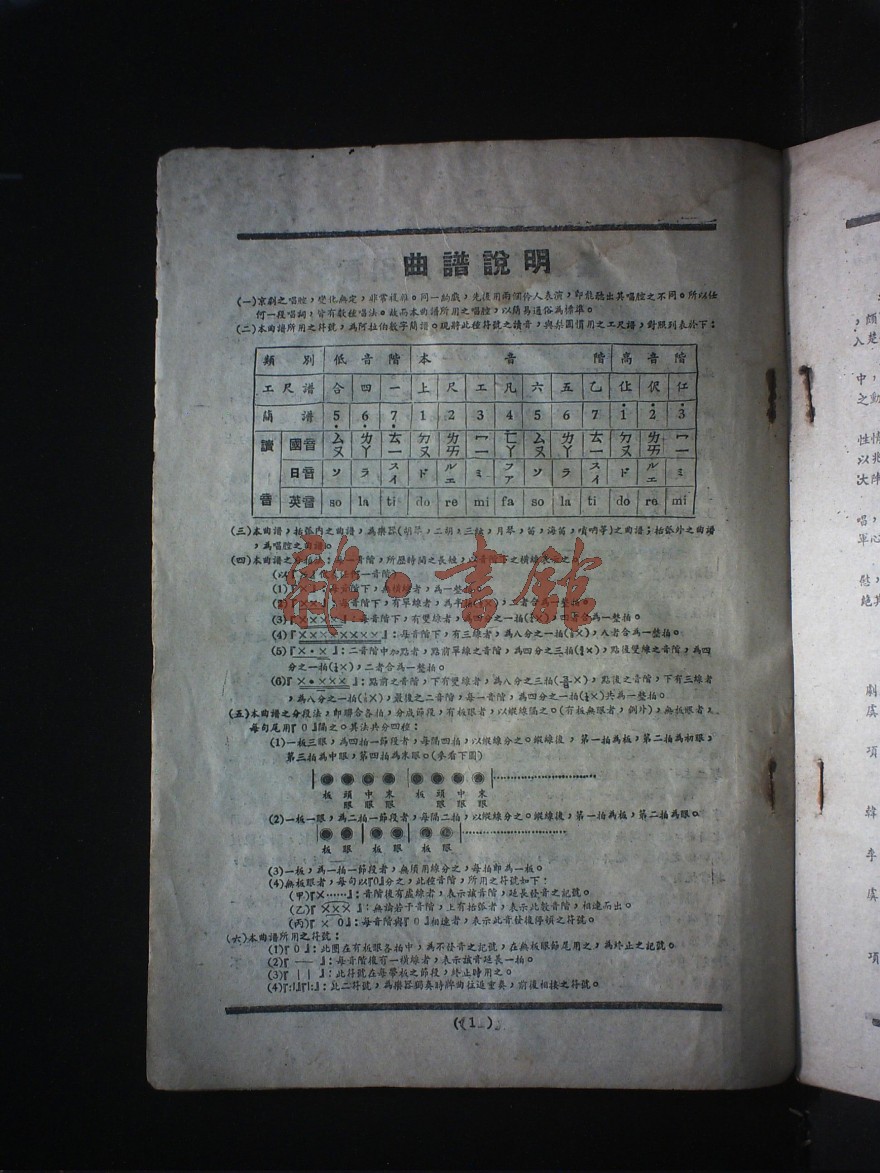 曲譜說明
(一)京劇之唱腔,變化無定,非常複雜。同一齣戲,先後用兩個伶人表演,即能聽出其唱腔之不同。所以任
何一段唱詞,皆有數種唱法。故而本曲譜所用之唱腔,以簡易通俗為標準。
(二)本曲譜所用之符號,為阿拉伯數字簡譜。現將此種符號之讀音,與梨園慣用之工尺譜,對照列表於下:
類別 低音階 本音階 高音階
工尺譜 合 四 一 上 尺 工 凡 六 五 乙 仩 伬 仜
簡譜 5̣ 6̣ 7̣ 1 2 3 4 5 6 7 1̇ 2̇ 3̇
讀音 國音 ㄙㄡ ㄌㄚ ㄊㄧ ㄉㄡ ㄌㄞ ㄇㄧ ㄈㄚ ㄙㄡ ㄌㄚ ㄊㄧ ㄉㄡ ㄌㄞ ㄇㄧ
日音 ソ ラ スイ ド ルエ ミ フア ソ ラ スイ ド ルエ ミ
英音 so la ti do re mi fa so la ti do re mi
(三)本曲譜,括弧內之曲譜,為樂器(胡琴,二胡,三絃,月琴,笛,海笛,嗩吶等)之曲譜;括弧外之曲譜
,為唱腔之曲譜。
(四)本曲譜之分拍法:每一音階,所歷時間之長短,以音階下之橫線表示之。
(以『×』代表任何一音階)
(1)『×』:每音階下,無橫線者,為一整拍。
(2)『××』:每音階下,有單線者,為半拍(½×),二者合為一整拍。
(3)『××××』:每音階下,有雙線者,為四分之一拍(¼×),四者合為一整拍。
(4)『××××××××』:每音階下,有三線者,為八分之一拍(⅛×),八者合為一整拍。
(5)『×·×』:二音階中加點者,點前單線之音階,為四分之三拍(¾×),點後雙線之音階,為四
分之一拍(¼×),二者合為一整拍。
(6)『×·×××』:點前之音階,下有雙線者,為八分之三拍(⅜×),點後之音階,下有三線者
,為八分之一拍(⅛×),最後之二音階,每一音階,為四分之一拍(¼×)共為一整拍。
(五)本曲譜之分段法,即聯合各拍,分成節段,有板眼者,以縱線隔之。(有板無眼者,例外),無板眼者,
每句尾用『0』隔之。其法共分四種:
(1)一板三眼,為四拍一節段者,每隔四拍,以縱線分之。縱線後,第一拍為板,第二拍為初眼,
第三拍為中眼,第四拍為末眼。(參看下圖)
板 頭眼 中眼 末眼 板 頭眼 中眼 末眼
(2)一板一眼,為二拍一節段者,每隔二拍,以縱線分之。縱線後,第一拍為板,第二拍為眼。
板 眼 板 眼 板 眼
(3)一板,為一拍一節段者,無須用線分之,每拍即為一板。
(4)無板眼者,每句以『0』分之,此種音階,所用之符號如下:
(甲)『×……』:音階後有虛線者,表示該音階,延長發音之記號。
(乙)『×××』:無論若干音階,上有括弧者,表示此數音階,相連而出。
(丙)『×0』:每音階與『0』相連者,表示此音發後停頓之符號。
(六)本曲譜所用之符號:
(1)『0』:此圈在有板眼各拍中,為不發音之記號,在無板眼節尾用之,為終止之記號。
(2)『—』:每音階後有一橫線者,表示該音延長一拍。
(3)『||』:此符號在每帶板之節段,終止時用之。
(4)『:|』『|:』:此二符號,為樂器獨奏時牌曲往返重奏,前後相接之符號。
(1)
雜·書館